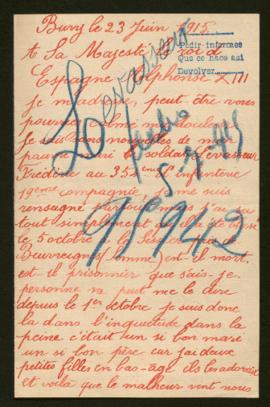 Bury le 23 Juin 1915
A Sa Majesté le roi d
Espagne Alphonse XIII
Pedir informes
Que se hace así
Devolver
Levasseur
Je m'adresse, peut être vous
pourrez calmer ma douleur
Je suis sans nouvelles de mon
pauvre mari le soldat Levasseur
Frédéric au 352 d'Infanterie
19eme compagnie je me suis
renseigné partout mais j'ai su
tout simplement qu'il a
le 5 octobre
Beuvreignes (Somme) est-il mort
est-il prisonnier que sais-je
personne ne peut me le dire
depuis le 1er Octobre je suis donc
la dans l'inquietude dans la
peine c'était un si bon mari
un si bon père car j'ai deux
petites filles en bas-age ils les adorait
et voilà que le malheur vint nous
91942